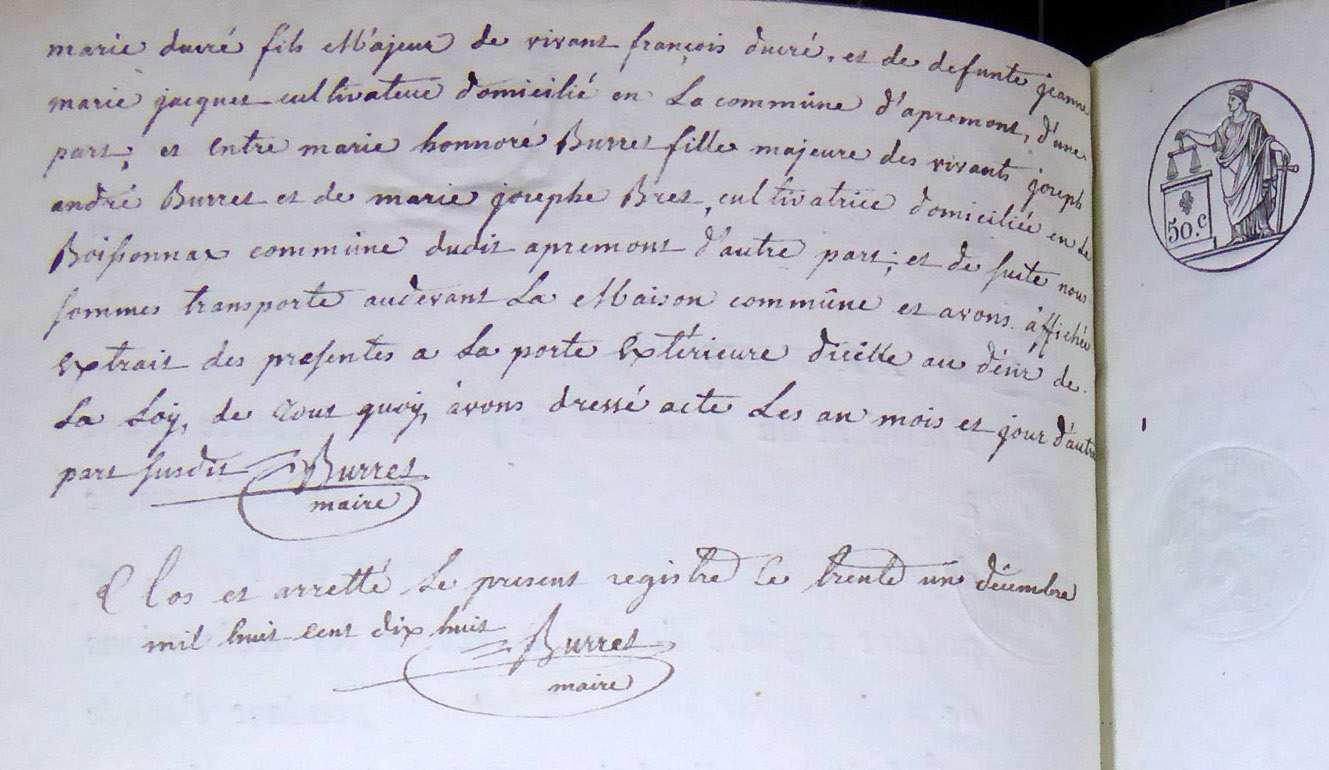 marie ducré fils Majeur de vivant françois ducré, et de defunte jeanne
marie jacquet cultivateur domicilié en La commûne d'apremont, d'une
part, et Entre marie honnoré Burret fille majeure des vivants joseph
andré Burret et de marie josephe Bret, cultivatrice domiciliée en Le
Boissonnax commûne dudit apremont d'autre part; et de suite nous
sommes transporte audevant La Maison commûne et avons affichée
Extrait des presentes a La porte Extérieure d'icelle au désir de
La Loÿ, de tout quoÿ, avons dressé acte Les an mois et jour d'autre
part susdit Burret
maire
Clos et arretté Le present registre Le trente un décembre
mil huit cent dix huit Burret
maire
50.C